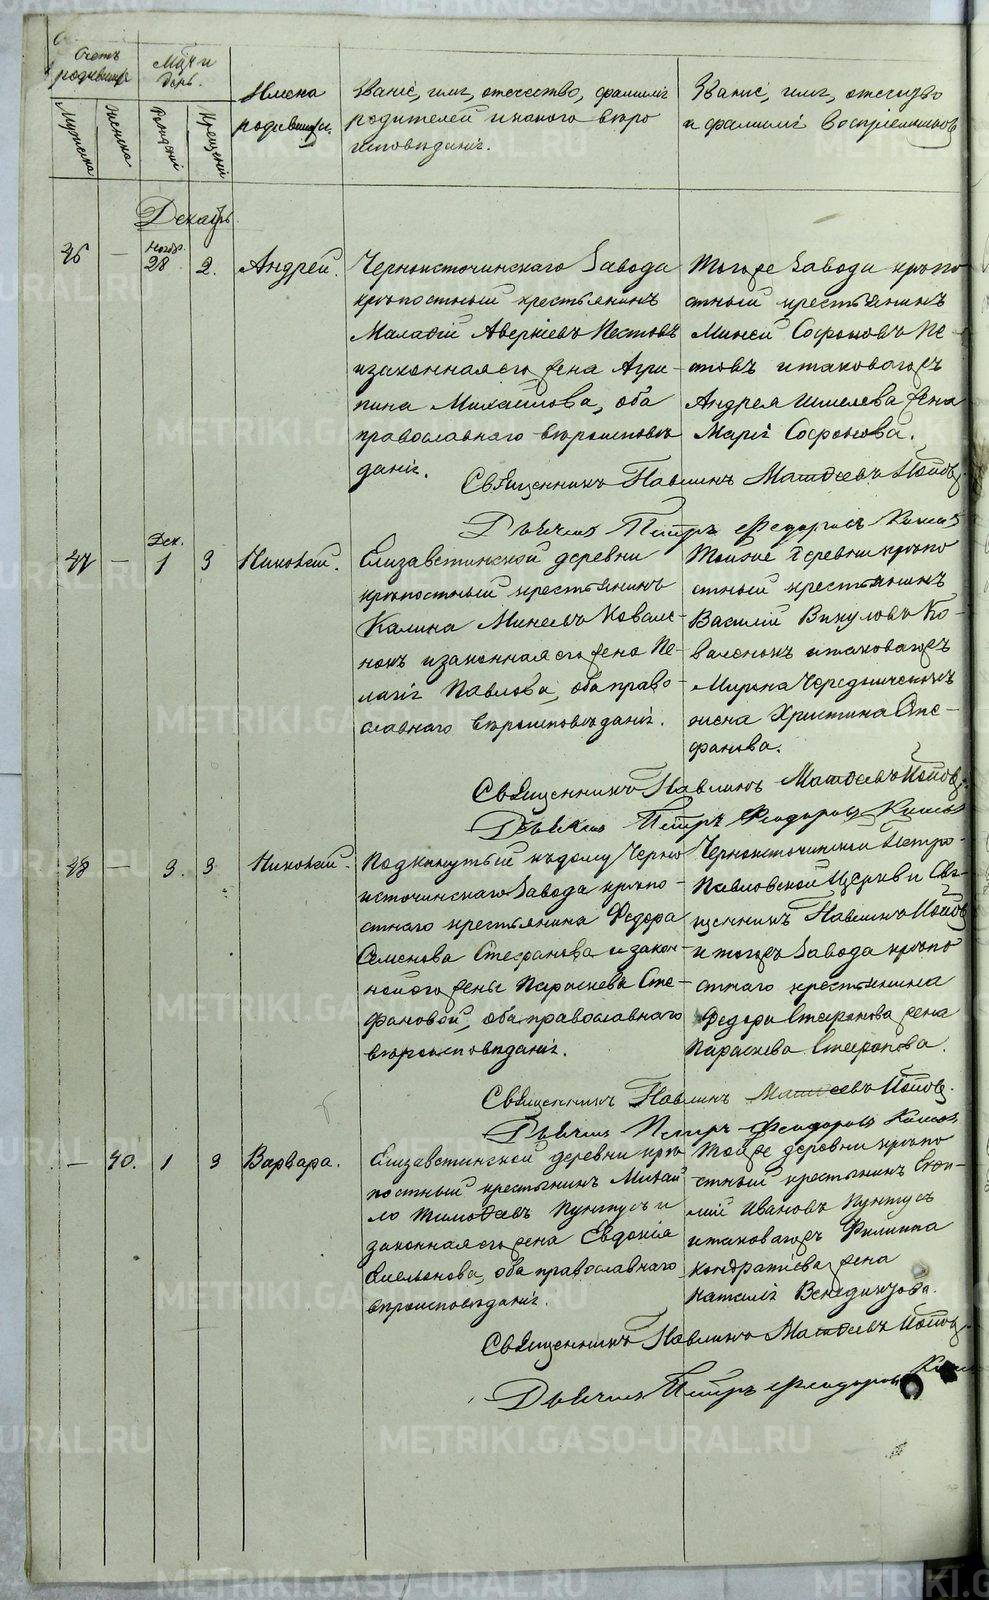 Счетъ родившихся
Мѣсяцъ и день.
Мужеска
Женска
Рожденія
Крещенія
Имена родившихся.
Званіе, имя, отечество, фамилія
родителей и какого вѣро
исповѣданія.
Званіе, имя, отечество
и фамилія воспріемниковъ
Декабрь
36 — Ноябр. 28 2. Андрей.
Черноисточинскаго завода
крѣпостный крестьянинъ
Маладій Аверкіевъ Пестовъ
и законная его жена Агри-
пина Михаилова, оба
православнаго вѣроисповѣ
данія.
Тогоже завода крѣпо
стный крестьянинъ
Миней Софоновъ Пе-
стовъ и таковагожъ
Андрея Шмелева жена
Марія Софонова.
Священникъ Павлинъ Матѳеевъ Поповъ
Дьячекъ Петръ Феодоровъ
37 — Дек. 1 3 Николай.
Елизаветинской деревни
крѣпостный крестьянинъ
Калина Минеевъ Ковале-
нокъ и законная его жена Пе-
лагія Павлова, оба право-
славнаго вѣроисповѣданія.
Тойже деревни крѣпо
стный крестьянинъ
Василій Викуловъ Ко-
валенокъ и таковагожъ
Мирона Чередниченкинъ
жена Христина Сте-
фанова.
Священникъ Павлинъ Матѳеевъ Поповъ.
Дьячекъ Петръ Феодоровъ
38 — 3. 3 Николай.
Подкинутый къ дому Черно
источинскаго завода крѣпо-
стнаго крестьянина Федора
Семенова Стефанова и закон-
ной его жены Параскева Сте-
фановой, оба православнаго
вѣроисповѣданія.
Черноисточинской Петро-
Павловской Церкви Свя-
щенникъ Павлинъ Поповъ
и тогожъ завода крѣпо
стнаго крестьянина
Федора Стефанова жена
Параскева Стефанова.
Священникъ Павлинъ Матѳеевъ Поповъ.
Дьячекъ Петръ Феодоровъ
— 40. 1 3 Варвара.
Елизаветинской деревни крѣ
постный крестьянинъ Михай
ло Тимоѳеевъ Пунтусъ и
законная его жена Евдокія
Емельянова, оба православнаго
вѣроисповѣданія.
Тойже деревни крѣпо
стный крестьянинъ
Ивановъ Пунтусъ
и таковагожъ Филиппа
Кондратіева жена
Наталія Венедиктова.
Священникъ Павлинъ Матѳеевъ Поповъ.
Дьячекъ Петръ Феодоровъ
METRIKI.GASO-URAL.RU